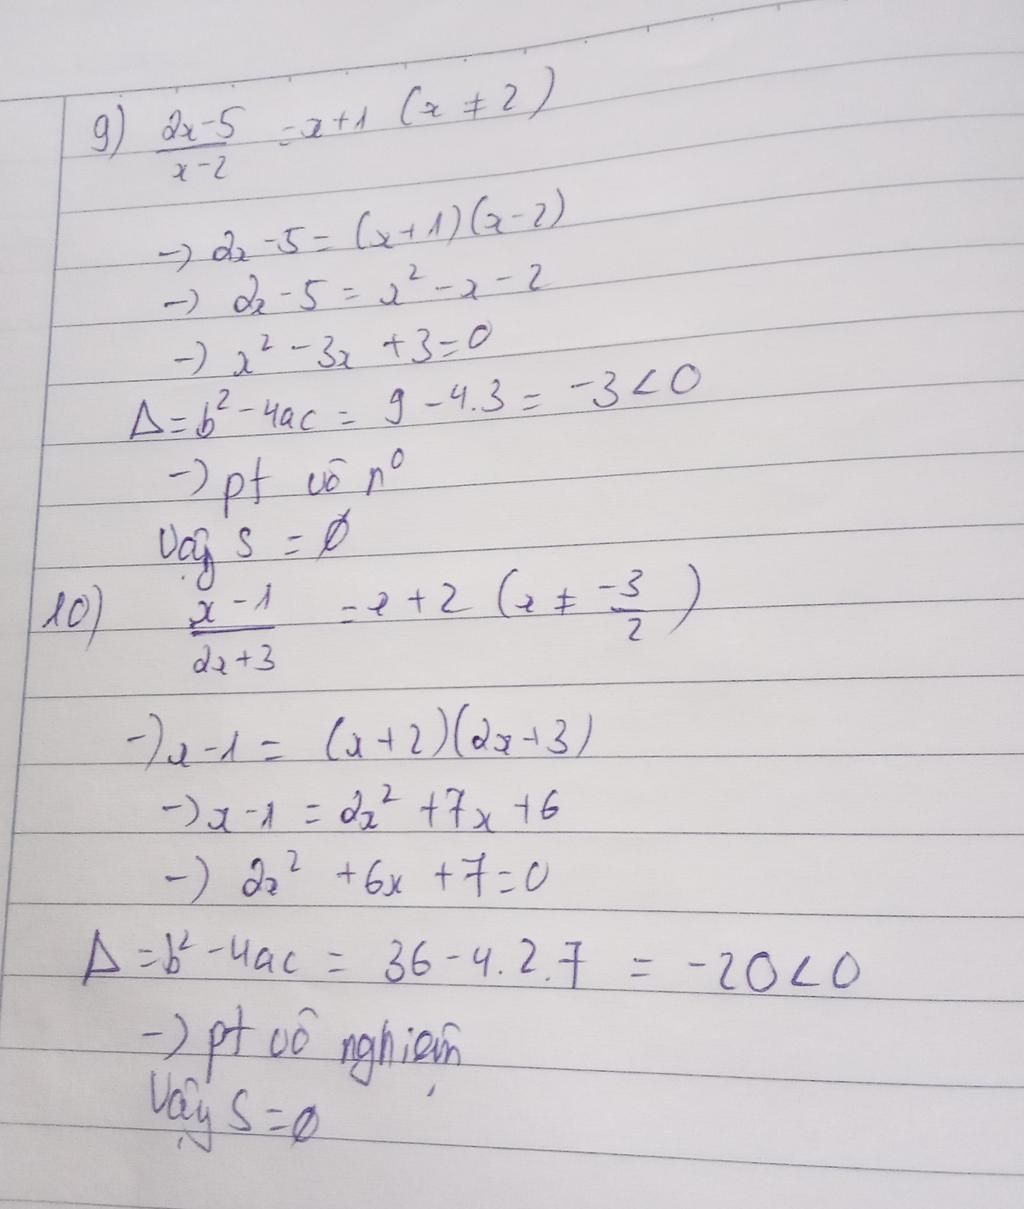 9) \frac{2x-5}{x-2} = x+1 (x ≠ 2)
-) 2x-5 = (x+1)(x-2)
-) 2x-5 = x² - x - 2
-) x² - 3x + 3 = 0
Δ = b² - 4ac = 9 - 4.3 = -3 < 0
-) pt vô n⁰
Vậy S = ∅
10) \frac{x-1}{2x+3} = x+2 (x ≠ \frac{-3}{2})
-) x-1 = (x+2)(2x+3)
-) x-1 = 2x² + 7x + 6
-) 2x² + 6x + 7 = 0
Δ = b² - 4ac = 36 - 4.2.7 = -20 < 0
-) pt vô nghiệm
Vậy S = ∅